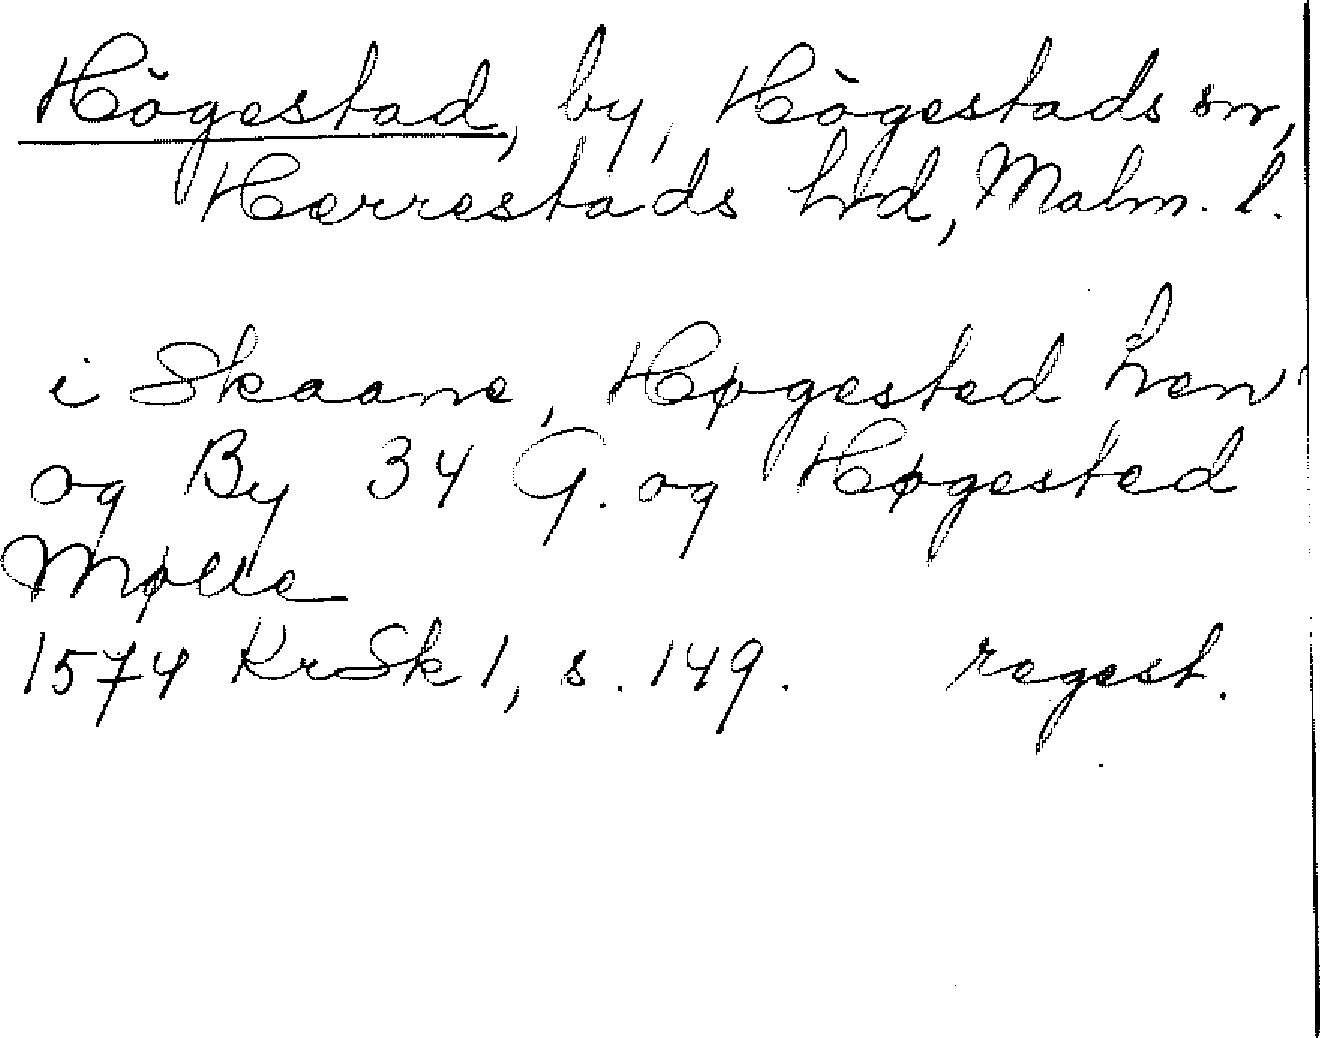 Högestad, by, Högestads sn,
Herrestads hd, Malm. l.
i Skaane, Høgested Len
og By 34 G. og Høgested
Mølle
1574 KrSk 1, s. 149. regest.